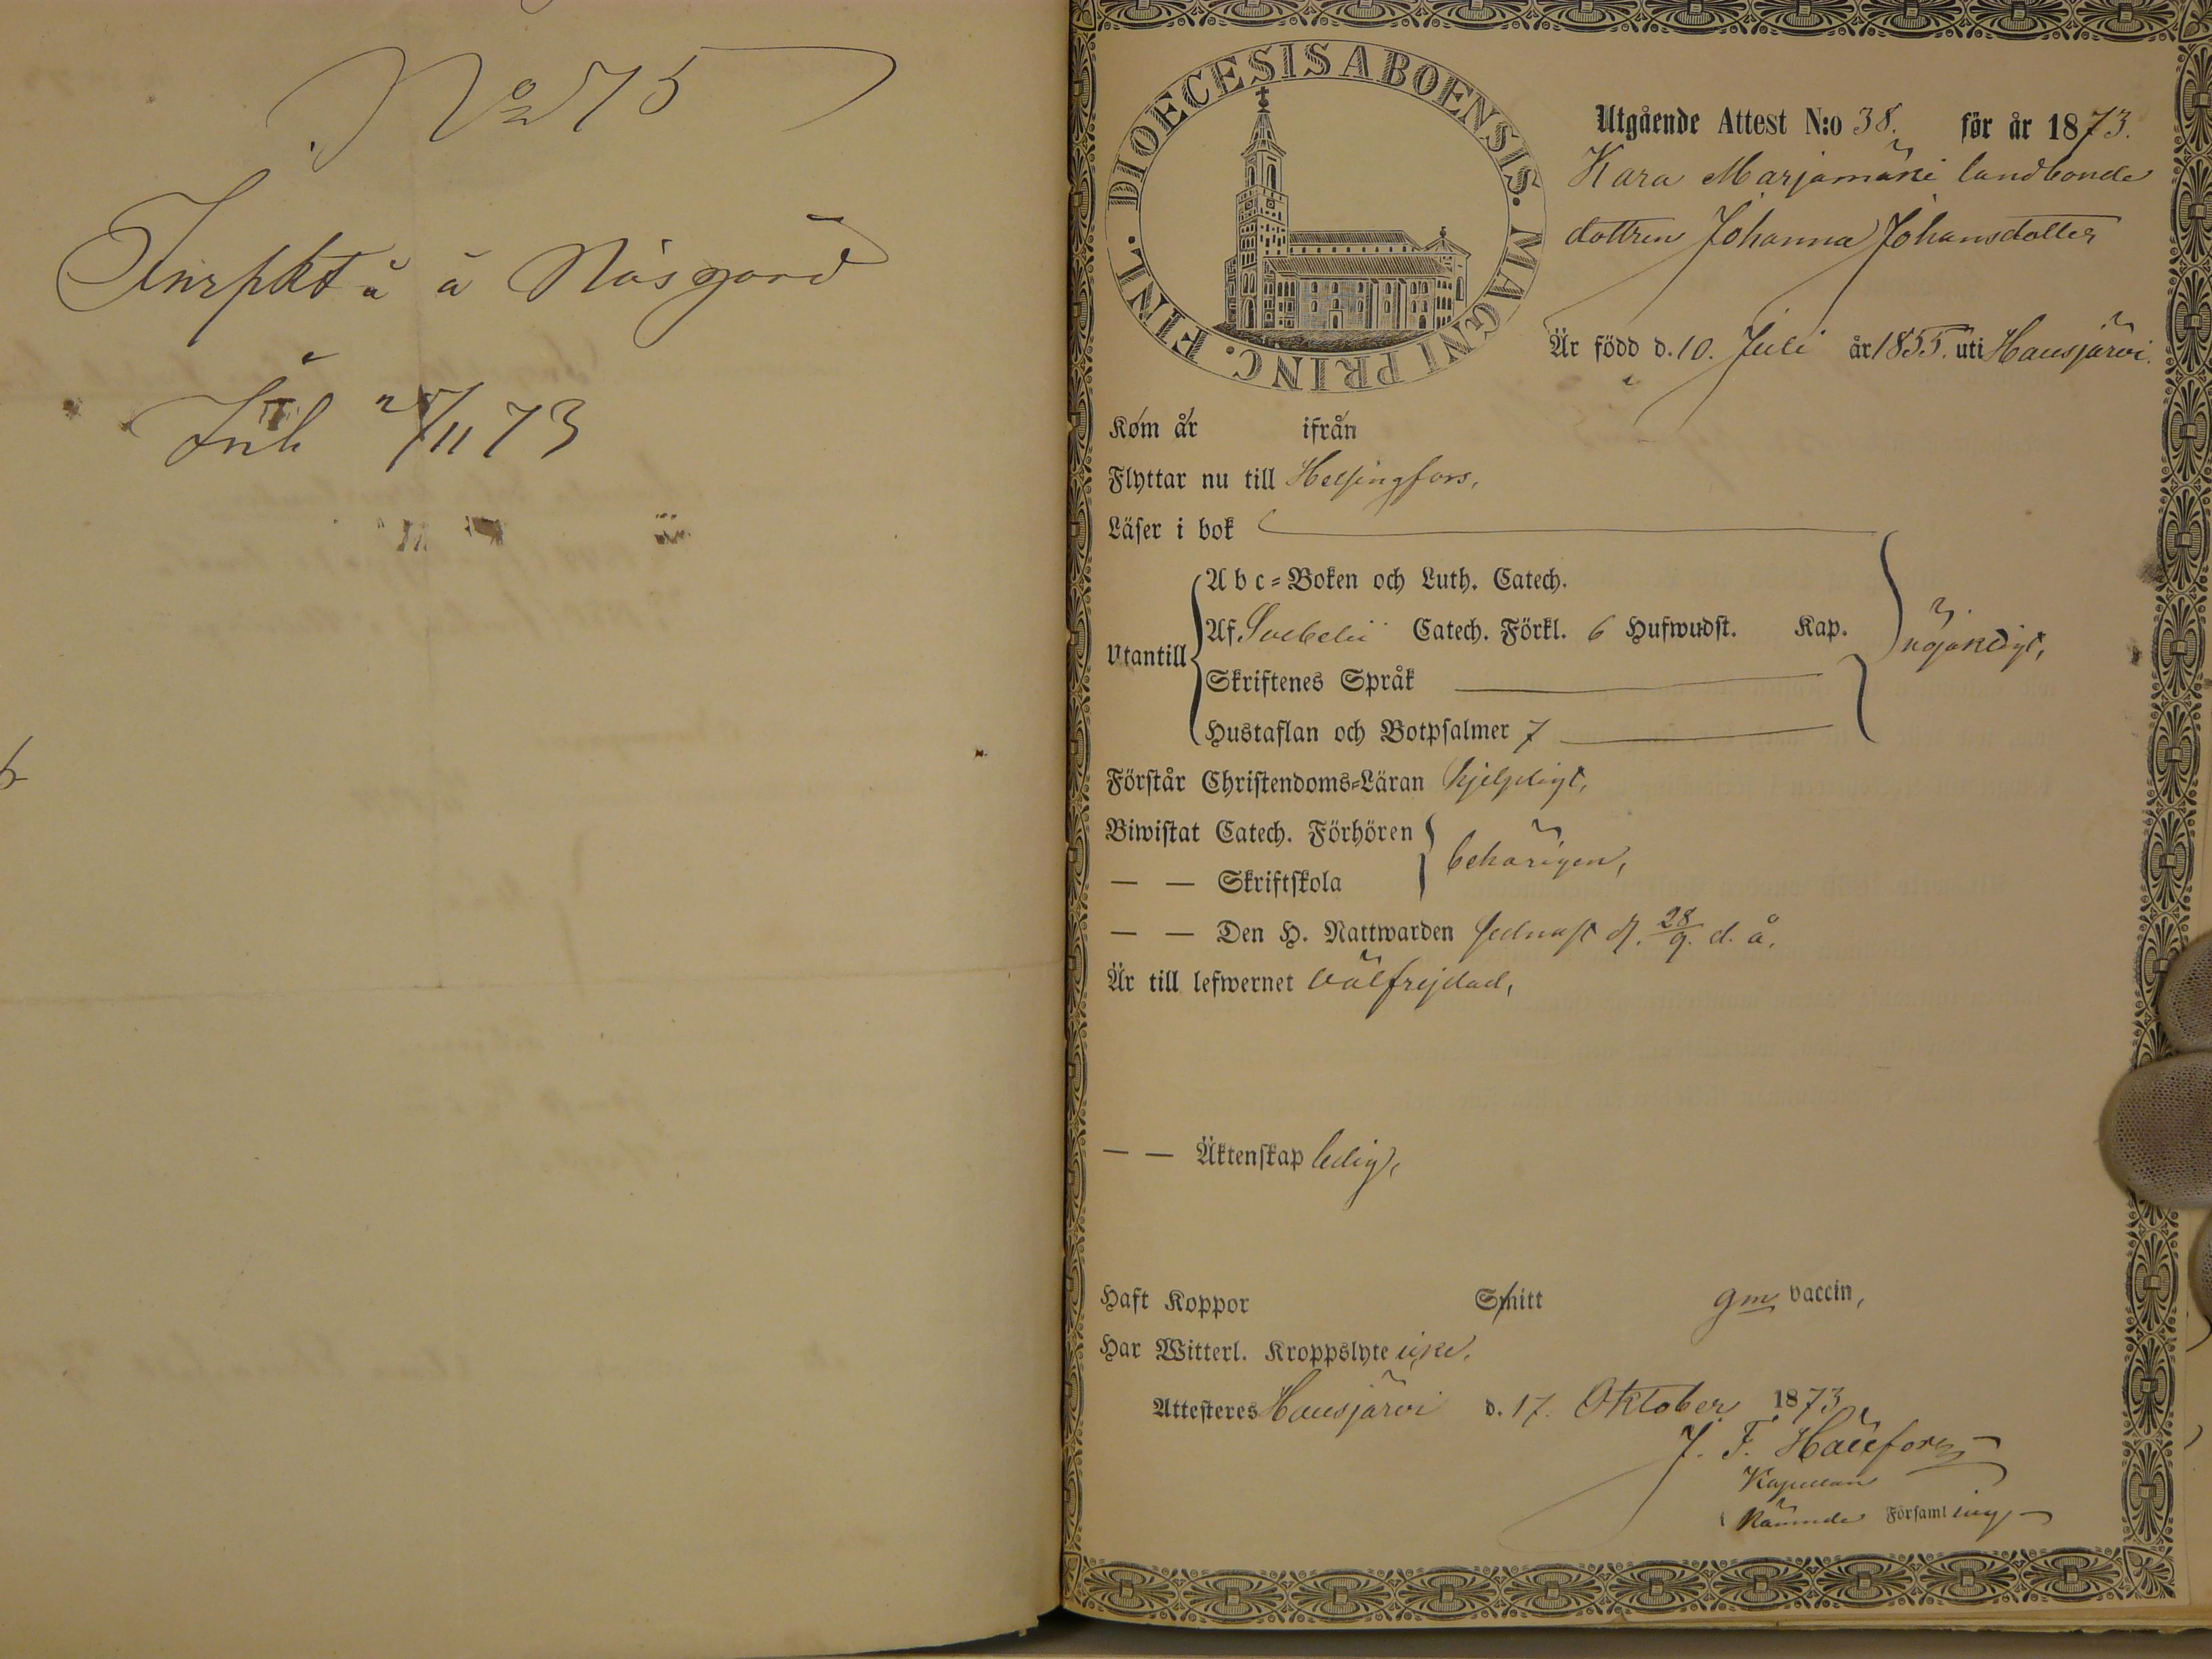 No 75
å Näsgård
Inl 25/11 73
DIOECESIS ABOENSIS. MAGNI PRINC. FINL.
Utgående Attest N:o 38. för år 1873.
Kara Marjamäki landbonde
dottren Johanna Johansdotter
Är född d. 10. Juli år 1855. uti Hausjärvi.
Kom år ifrån
Flyttar nu till Helsingfors,
Läser i bok
Utantill
Abc=Boken och Luth. Catech.
Af Svebelii Catech. Förkl. 6 Hufwudst. Kap.
nöjaktigt,
Skriftenes Språk
Hustaflan och Botpsalmer 7
Förstår Christendoms=Läran hjelpligt,
Biwistat Catech. Förhören
behörigen,
— — Skriftskola
— — Den H. Nattwarden sednast d. 28/9. d. å.
Är till lefwernet välfrejdad,
— — Äktenskap ledig,
Haft Koppor Smitt gm vaccin,
Har Witterl. Kroppslyte icke.
Attesteres Hausjärvi d. 17. Oktober 1873
J. F. Hällfors
Kapellan
Församling